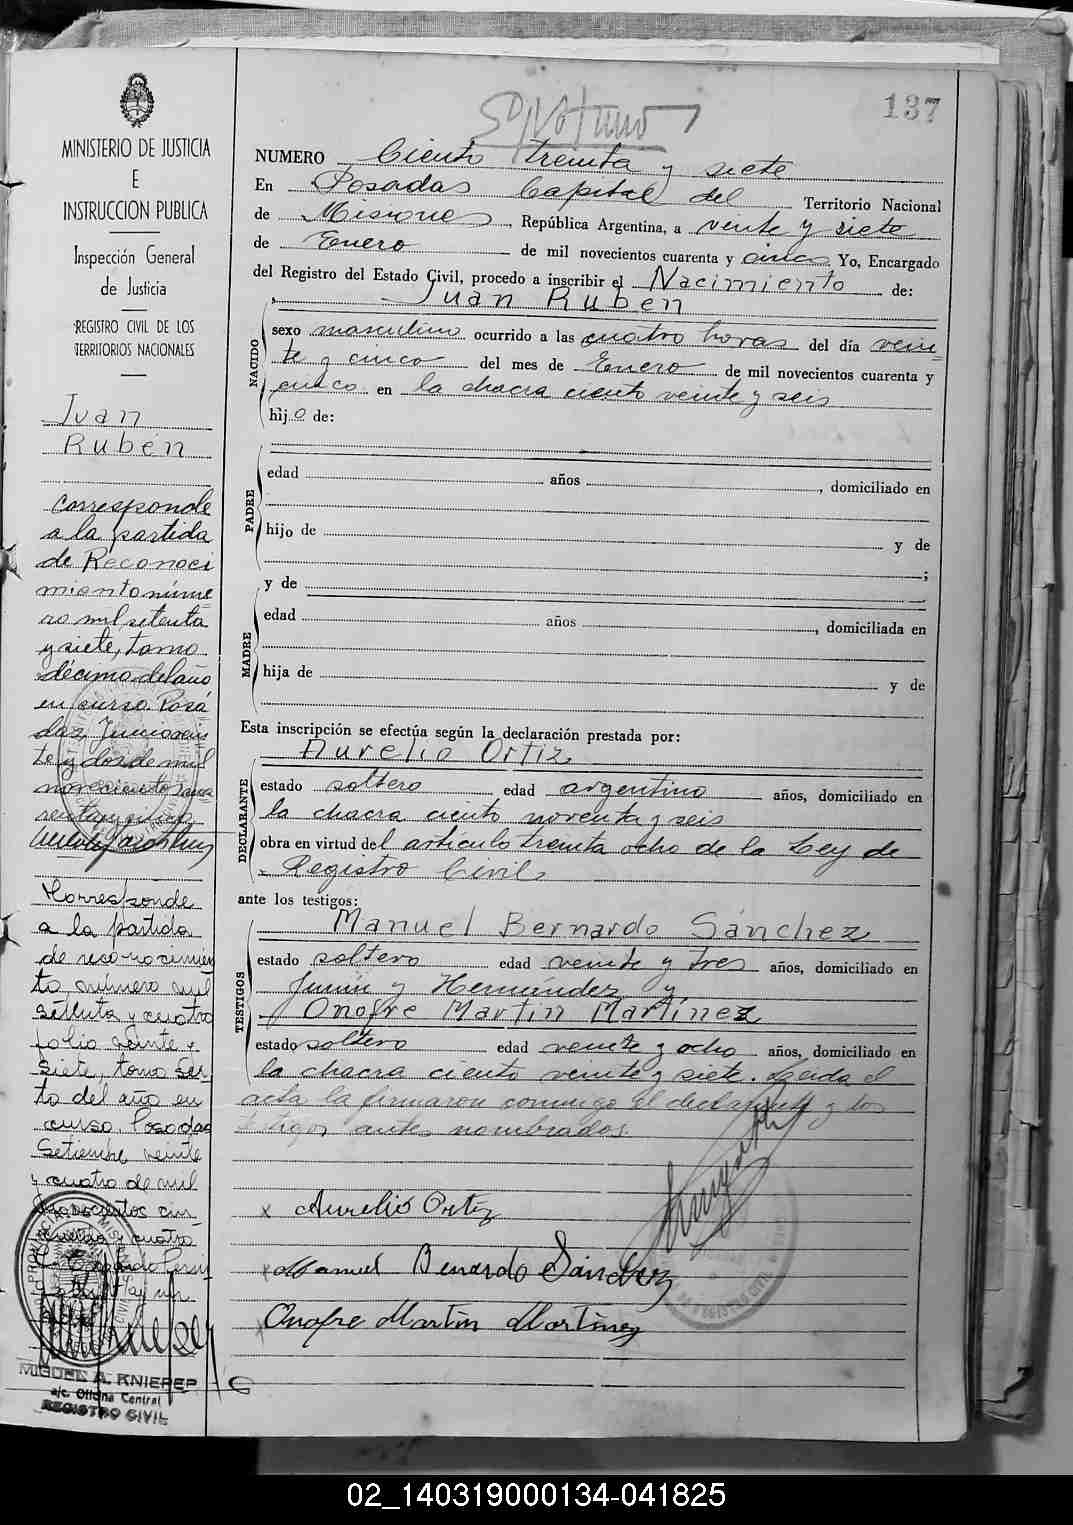 137
MINISTERIO DE JUSTICIA
E
INSTRUCCION PUBLICA
Inspección General
de Justicia
REGISTRO CIVIL DE LOS
TERRITORIOS NACIONALES
Juan
Rubén
Corresponde
a la partida
de Reconoci
miento núme
ro mil setenta
y siete, tomo
décimo del año
en curso. Posa
das, Junio vein
te y dos de mil
novecientos cua
renta y cinco
Corresponde
a la partida
de reconocimien
to número mil
setenta y cuatro
folio veinte y
siete, tomo sex
to del año en
curso. Posadas
Setiembre veinte
y cuatro de mil
novecientos cin
cuenta y cuatro
MIGUEL A. KNIEPEP
a/c. Oficina Central
REGISTRO CIVIL
NUMERO Ciento treinta y siete
En Posadas Capital del Territorio Nacional
de Misiones, República Argentina, a veinte y siete
de Enero de mil novecientos cuarenta y cinco Yo, Encargado
del Registro del Estado Civil, procedo a inscribir el Nacimiento de:
Juan Rubén
NACIDO
sexo masculino ocurrido a las cuatro horas del día vein-
te y cinco del mes de Enero de mil novecientos cuarenta y
cinco en la chacra ciento veinte y seis
hijo de:
PADRE
edad años , domiciliado en
hijo de y de
;
y de
MADRE
edad años , domiciliada en
hija de y de
Esta inscripción se efectúa según la declaración prestada por:
Aurelio Ortiz
DECLARANTE
estado soltero edad argentino años, domiciliado en
la chacra ciento noventa y seis
obra en virtud del artículo treinta ocho de la Ley de
Registro Civil
ante los testigos:
TESTIGOS
Manuel Bernardo Sánchez
estado soltero edad veinte y tres años, domiciliado en
Junín y Hernández y
Onofre Martin Martínez
estado soltero edad veinte y ocho años, domiciliado en
la chacra ciento veinte y siete. Leida el
acta la firmaron conmigo el declarante y los
testigos antes nombrados.
x Aurelio Ortiz
x Manuel Benardo Sánchez
x Onofre Martin Martinez
02_140319000134-041825